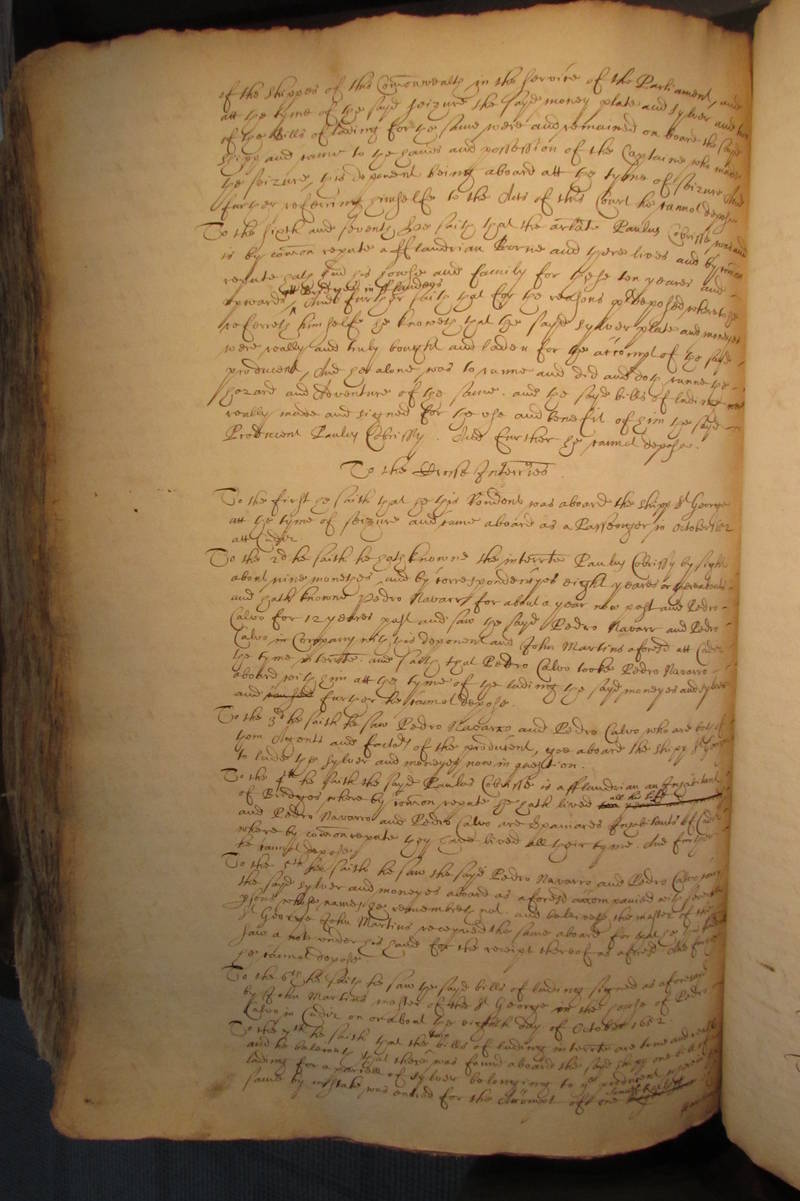 of the Shippes of this Com̄onwealth in the Service of the Parliament, and
att the tyme of the sayd seizure the sayd money plate and sylver and
of the bills of lading for the same were and remained on board the sayd
shipp and came to the hands and possession of the Captaine who made
the seizure, this deponent being aboard att the tyme of seizure And
further referring himselfe to the Acts of this Court he cannot depose
To the sixth and seventh hee saith that the arlate Paulus Cobrisse was and
is by com̄on repute a fflandrian Borne and there lives and by com̄on
repute hath had his howse and family for these ten yeares and
att Bridges in fflanders
upwards, And further saith that for the reasons p̱deposed whereto he
referreth himselfe he knoweth that the sayd sylver plate and moneyes
were really and truly bought and laden for the accompt of the sayd
producent, And hee alone was to runne and did and doth runne the
hazard and adventure of the same. and the sayd bills of lading were
really made and signed for the use and benefit of him the sayd
Producent Paulus Cobrissy. And further he cannot depose.
To the Crosse Interries
To the first he saith that he this Rondent was aboard the shipp St George
att the tyme of seizure and came aboard as a Passenger in October 1652
att Cadiz
To the 2d he saith he hath knowne the interrte Paulus Cobrissy by sight
about nine monethes, and by correspondency eight yeares or thereabouts
and hath knowne Pedro Navarro for about a year now past and Pedro
Calvo for 12 yeares past and saw the sayd Pedro Navarr and Pedro
Calvo in Company with this deponent and John Martins aforesd att Cadiz
the tyme interrte. and saith that Pedro Calvo tooke Pedro Navarro
aboard with him att the tyme of the lading the sayd moneyes and sylver
and further he cannot depose.
To the 3d he saith he saw Pedro Navarro and Pedro Calvo who are both of
them Agents and Factors of the producent, goe aboard the shipp St George
to lade the sylver and moneyes now in question.
To the 4th he saith the sayd Paulus Cobrisse is a fflandrian an Inhabitant
of Bridges where by com̄on repute he hath lived all his life
and Pedro Navarro and Pedro Calvo are Spaniards Inhabitants of Cadiz
where by com̄on repute they have lived all their tyme. And further
he cannot depose.
To the 5th hee saith he saw the sayd Pedro Navarro and Pedro Calvo
the sayd sylver and moneyes aboard as aforesd accompanied with
persons whose names he remembreth not, and beleiveth the master of the
St George John Martins received the same aboard for that he
saw a note under his hand for the receipt thereof as aforesd And further
he cannot depose.
To the 6th he saith he saw the sayd bills of lading signed as aforesayd
by John Martins master of the St George in the howse of Pedro
Calvo in Cadiz on or about the eighth day of October 1652.
To the 7th he saith that the bills of lading interrte are true and really
and he beleiveth that there was found aboard the sayd shipp one bill of
lading for a parcell of sylver belonging to ye producent
same by mistake was entred for the Accompt off one